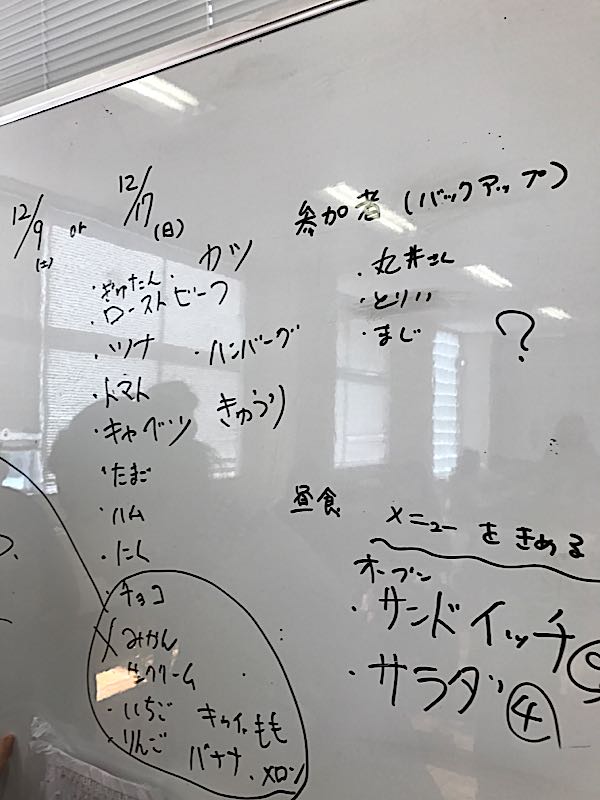 12/9 or 12/17
(土) (日)
・ぎゅたん ・カツ
・ローストビーフ
・ツナ ・ハンバーグ
・トマト
・キャベツ きゅうり
・たまご
・ハム
・チョコ
みかん
生クリーム
・いちご キウイ もも
・りんご バナナ ・メロン
参加者(バックアップ)
・丸井さん
・とりい
・まじ
?
昼食 メニューをきめる
オープン
・サンドイッチ
・サラダ ④